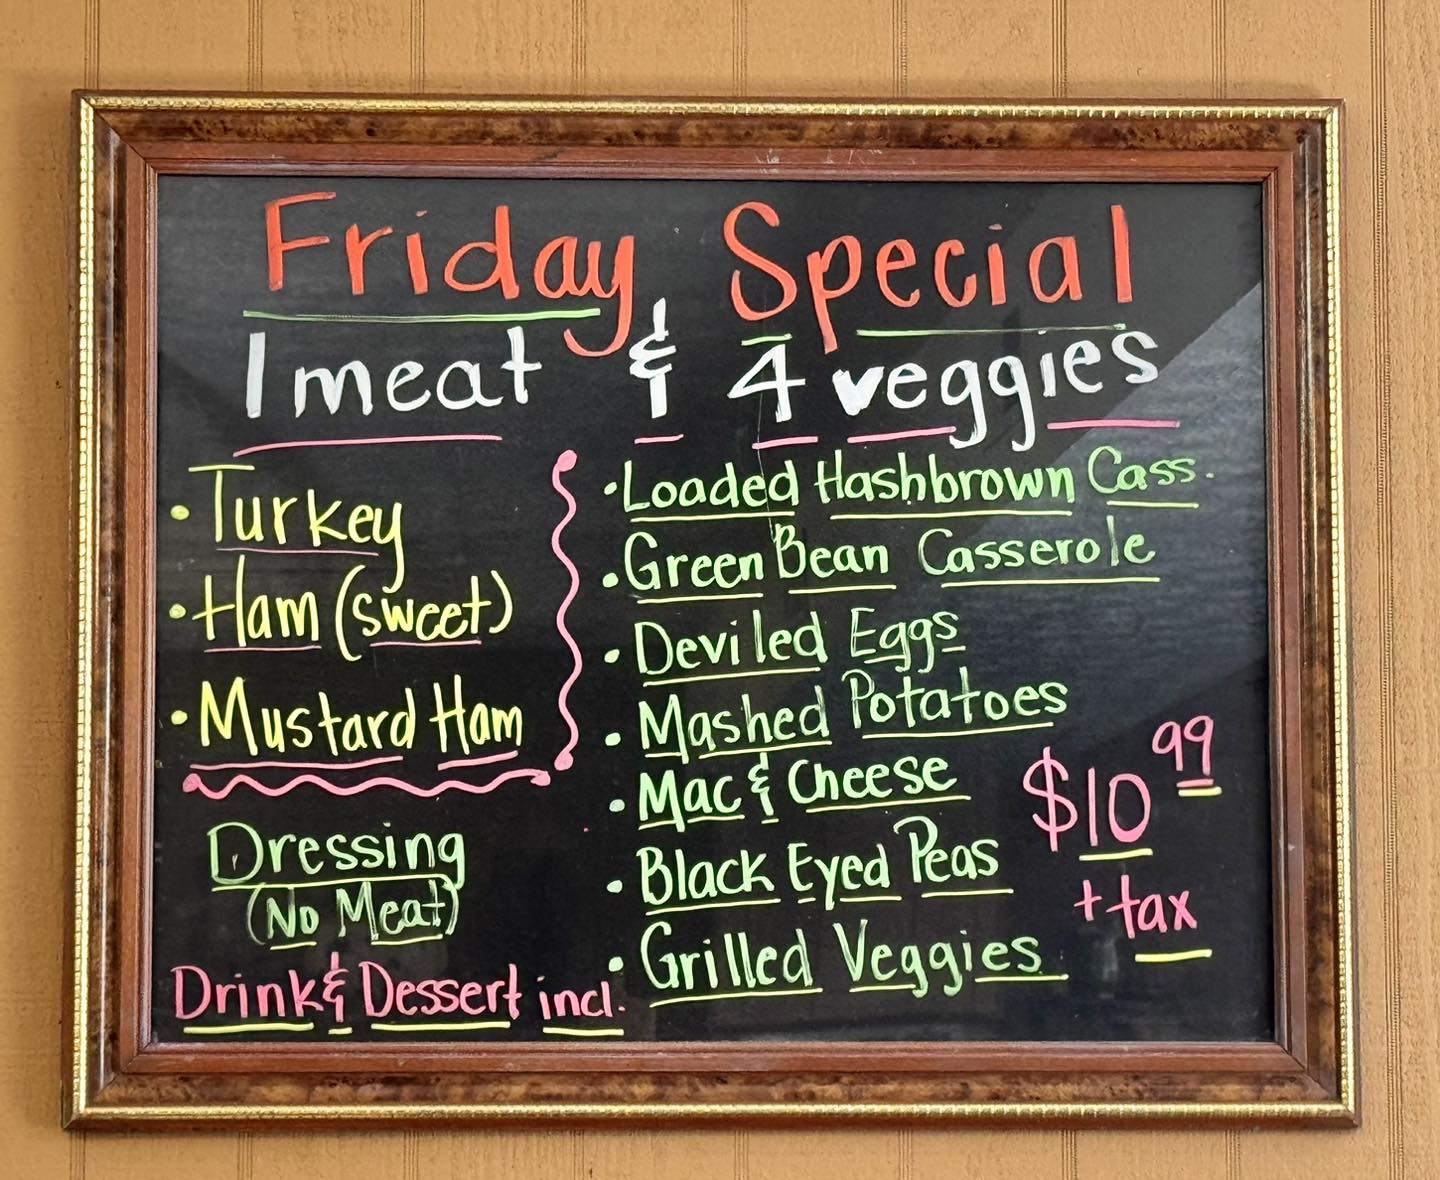 Friday Special
1 meat & 4 veggies
• Turkey
• Ham (sweet)
• Mustard Ham
Dressing
(No Meat)
Drink & Dessert incl.
• Loaded Hashbrown Cass.
• Green Bean Casserole
• Deviled Eggs
• Mashed Potatoes
• Mac & Cheese
• Black Eyed Peas
• Grilled Veggies
$10 99
+ tax